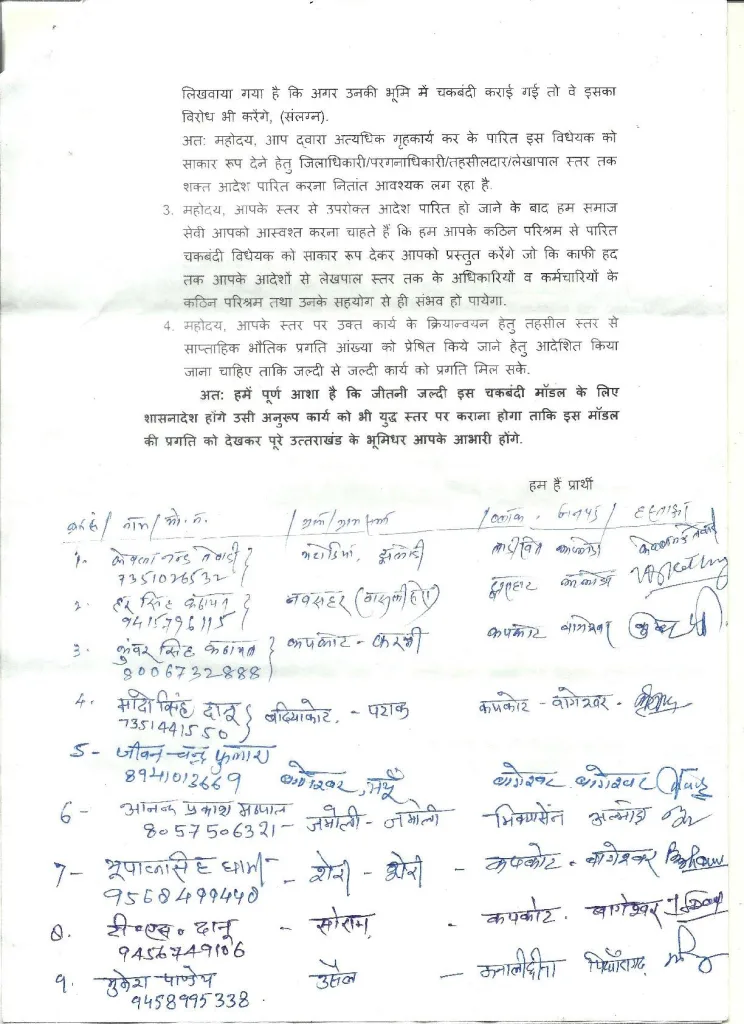 लिखवाया गया है कि अगर उनकी भूमि में चकबंदी कराई गई तो वे इसका
विरोध भी करेंगे, (संलग्न).
अत: महोदय, आप दवारा अत्यधिक गृहकार्य कर के पारित इस विधेयक को
साकार रूप देने हेतु जिलाधिकारी/परगनाधिकारी/तहसीलदार/लेखापाल स्तर तक
शक्त आदेश पारित करना नितांत आवश्यक लग रहा है.
3. महोदय, आपके स्तर से उपरोक्त आदेश पारित हो जाने के बाद हम समाज
सेवी आपको आस्वश्त करना चाहते हैं कि हम आपके कठिन परिश्रम से पारित
चकबंदी विधेयक को साकार रूप देकर आपको प्रस्तुत करेंगे जो कि काफी हद
तक आपके आदेशों से लेखपाल स्तर तक के अधिकारियों व कर्मचारियों के
कठिन परिश्रम तथा उनके सहयोग से ही संभव हो पायेगा.
4. महोदय, आपके स्तर पर उक्त कार्य के क्रियान्वयन हेतु तहसील स्तर से
साप्ताहिक भौतिक प्रगति आंख्या को प्रेषित किये जाने हेतु आदेशित किया
जाना चाहिए ताकि जल्दी से जल्दी कार्य को प्रगति मिल सके.
अत: हमें पूर्ण आशा है कि जीतनी जल्दी इस चकबंदी मॉडल के लिए
शासनादेश होंगे उसी अनुरूप कार्य को भी युद्ध स्तर पर कराना होगा ताकि इस मॉडल
की प्रगति को देखकर पूरे उत्तराखंड के भूमिधर आपके आभारी होंगे.
हम हैं प्रार्थी
नाम / मो. न. ब्लॉक - जनपद / हस्ताक्षर
1.
7351026532
2. हर सिंह
9415796115
3. कुंवर सिंह कपकोट - बागेश्वर
8006732888
4. सिंह दानू बदियाकोट - कपकोट - बागेश्वर -
7351441550
5 - जीवन चन्द्र
8941013669 बागेश्वर बागेश्वर बागेश्वर
6 - आनन्द प्रकाश
8057506321 - जमोली - जमोली
7 - भूपाल सिंह धामी - शेरी - शेरी - कपकोट - बागेश्वर
9568499440
8. टी०एस० दानू - सोराग - कपकोट. बागेश्वर
9456749106
9. मुकेश पाण्डेय -
9458995338.